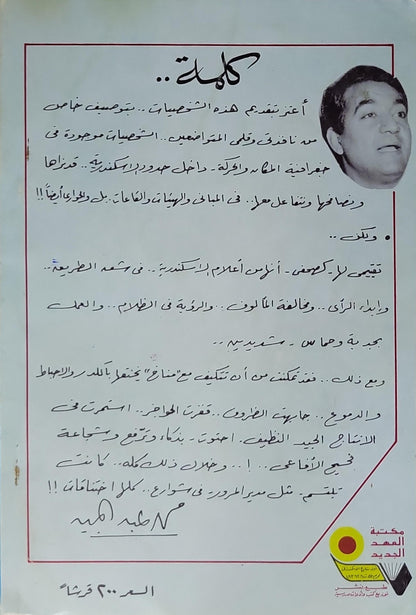 كلمة ..
أعتز بتقديم هذه الشخصيات .. بتوصيف خاص
من نافذتى وقلمى المتواضعين .. الشخصيات موجودة فى
جغرافية المكان والحركة - داخل حدود الاسكندرية .. قد نراها
ونصافحها ونتفاعل معها .. فى المبانى والهيئات والقاعات . بل والحوارى أيضاً !!
• ولكن ..
تقييمى لها - كصحفى - أنها من أعلام الاسكندرية .. فى شق الطريق ..
وإبداء الرأى .. ومخالفة المألوف .. والرؤية فى الظلام .. والعمل
بجدية وحماس - شديدين ..
ومع ذلك .. فقد تمكنت من أن تتكيف مع "مناخ" يخنقها بالكدر والاحباط
والدموع .. جابهت الظروف .. قفزت الحواجز .. استمرت فى
الانتاج الجيد النظيف . احتوت - بذكاء وترفع وشجاعة
فحيح الأفاعى .. ! .. وخلال ذلك كله .. كانت
تبتسم - مثل مدير المرور فى شوارع .. كلها اختناقات !!
مكتبة
العهد
الجديد
السعر ٢٠٠ قرشاً